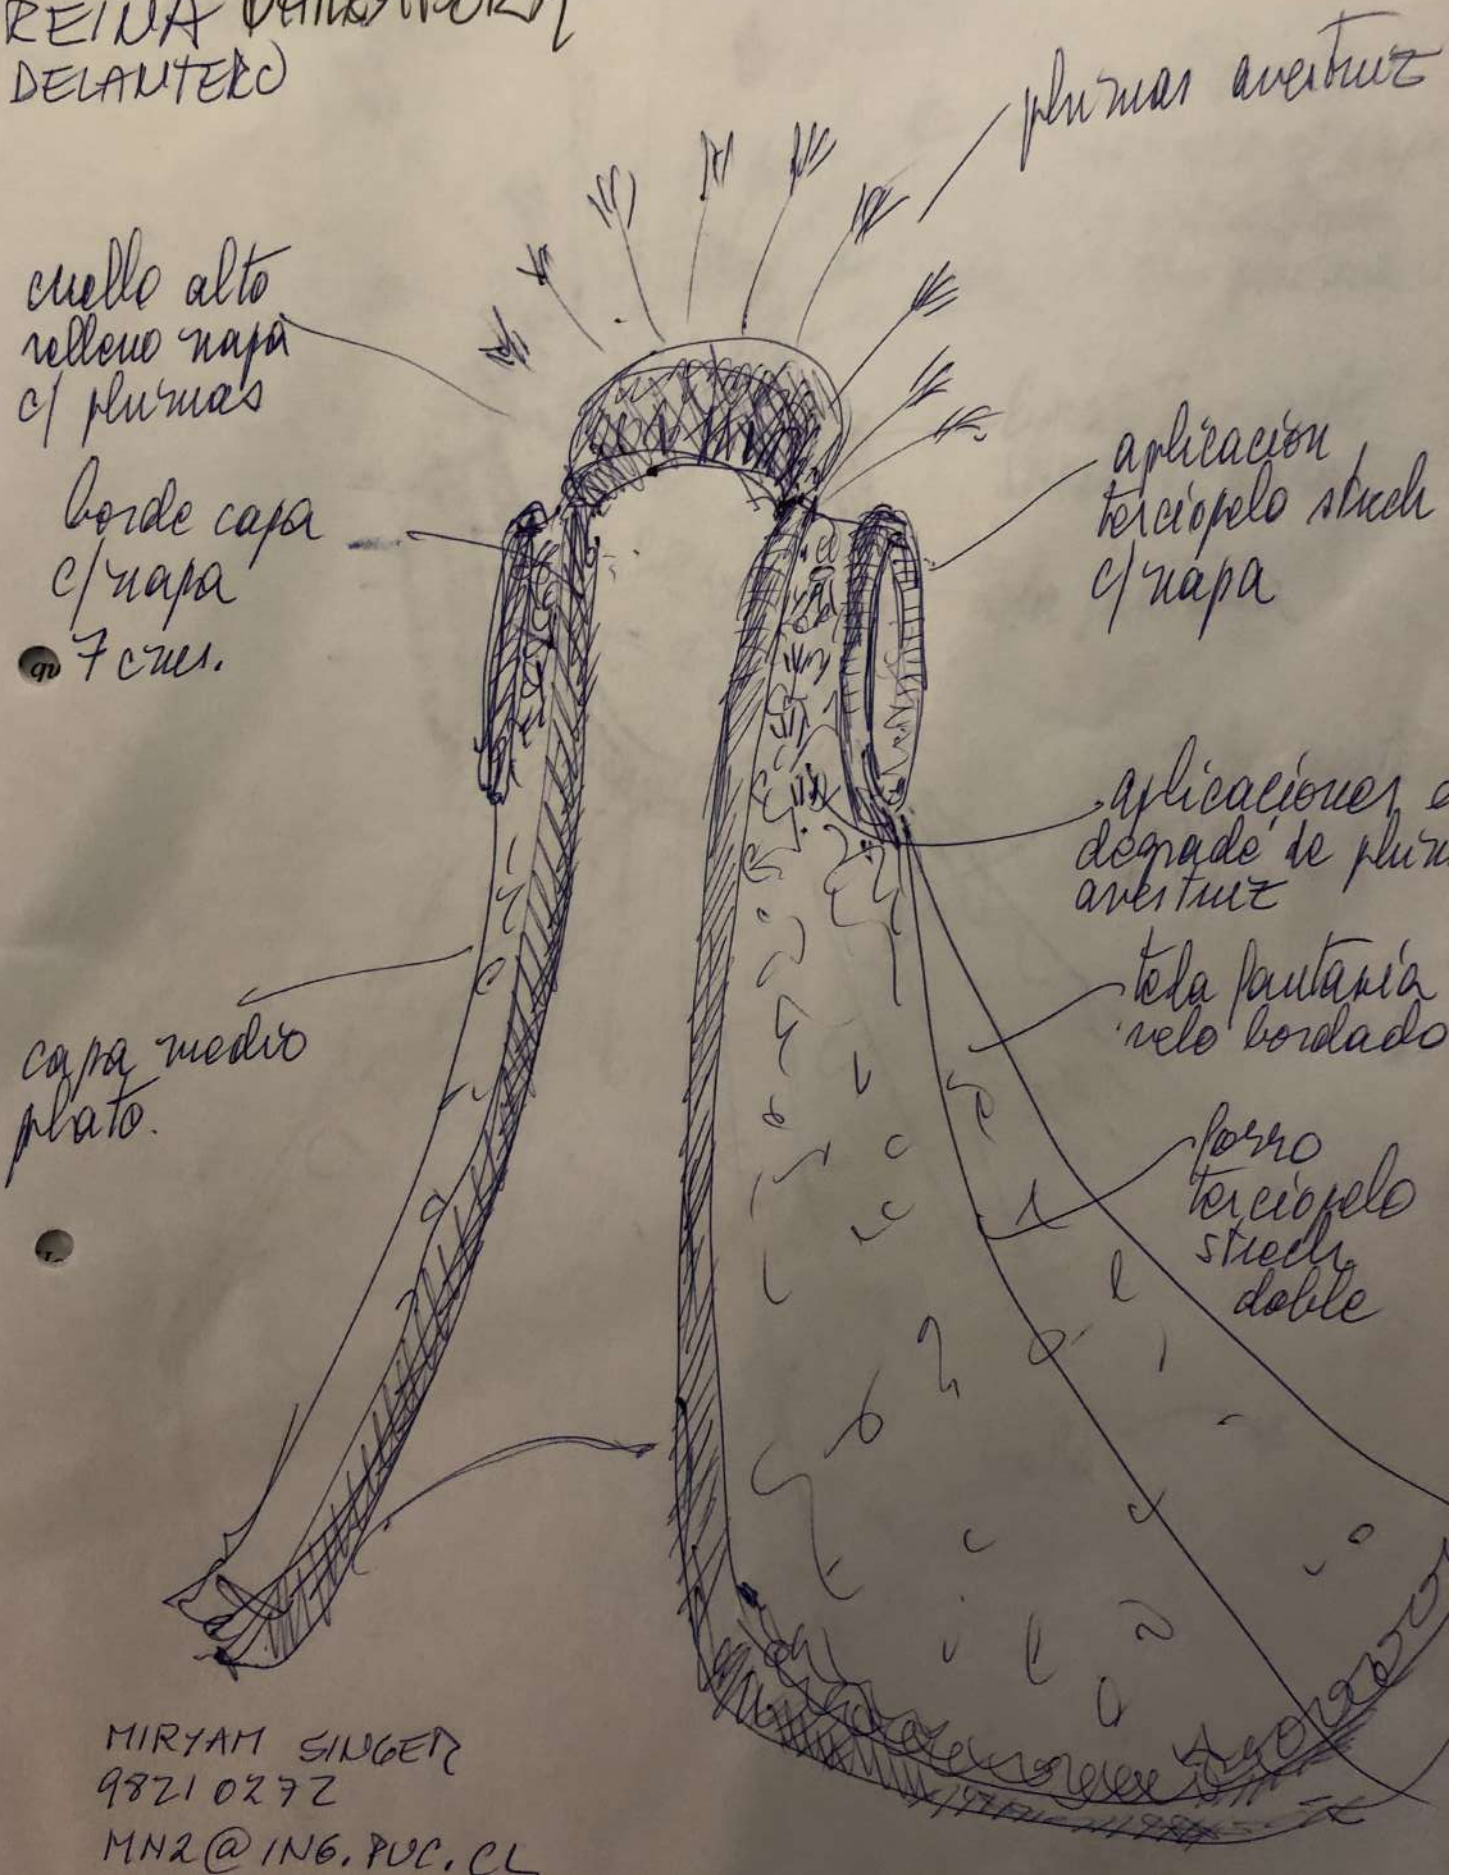 REINA
DELANTERO
plumas avestruz
cuello alto
relleno napa
c/ plumas
borde capa
c/ napa
7 cms.
aplicación
terciopelo strech
c/ napa
aplicaciones
degradé de
avestruz
tela fantasía
velo bordado
capa medio
plato.
forro
terciopelo
strech
doble
MIRYAM SINGER
98210272
MN2@ING.PUC.CL